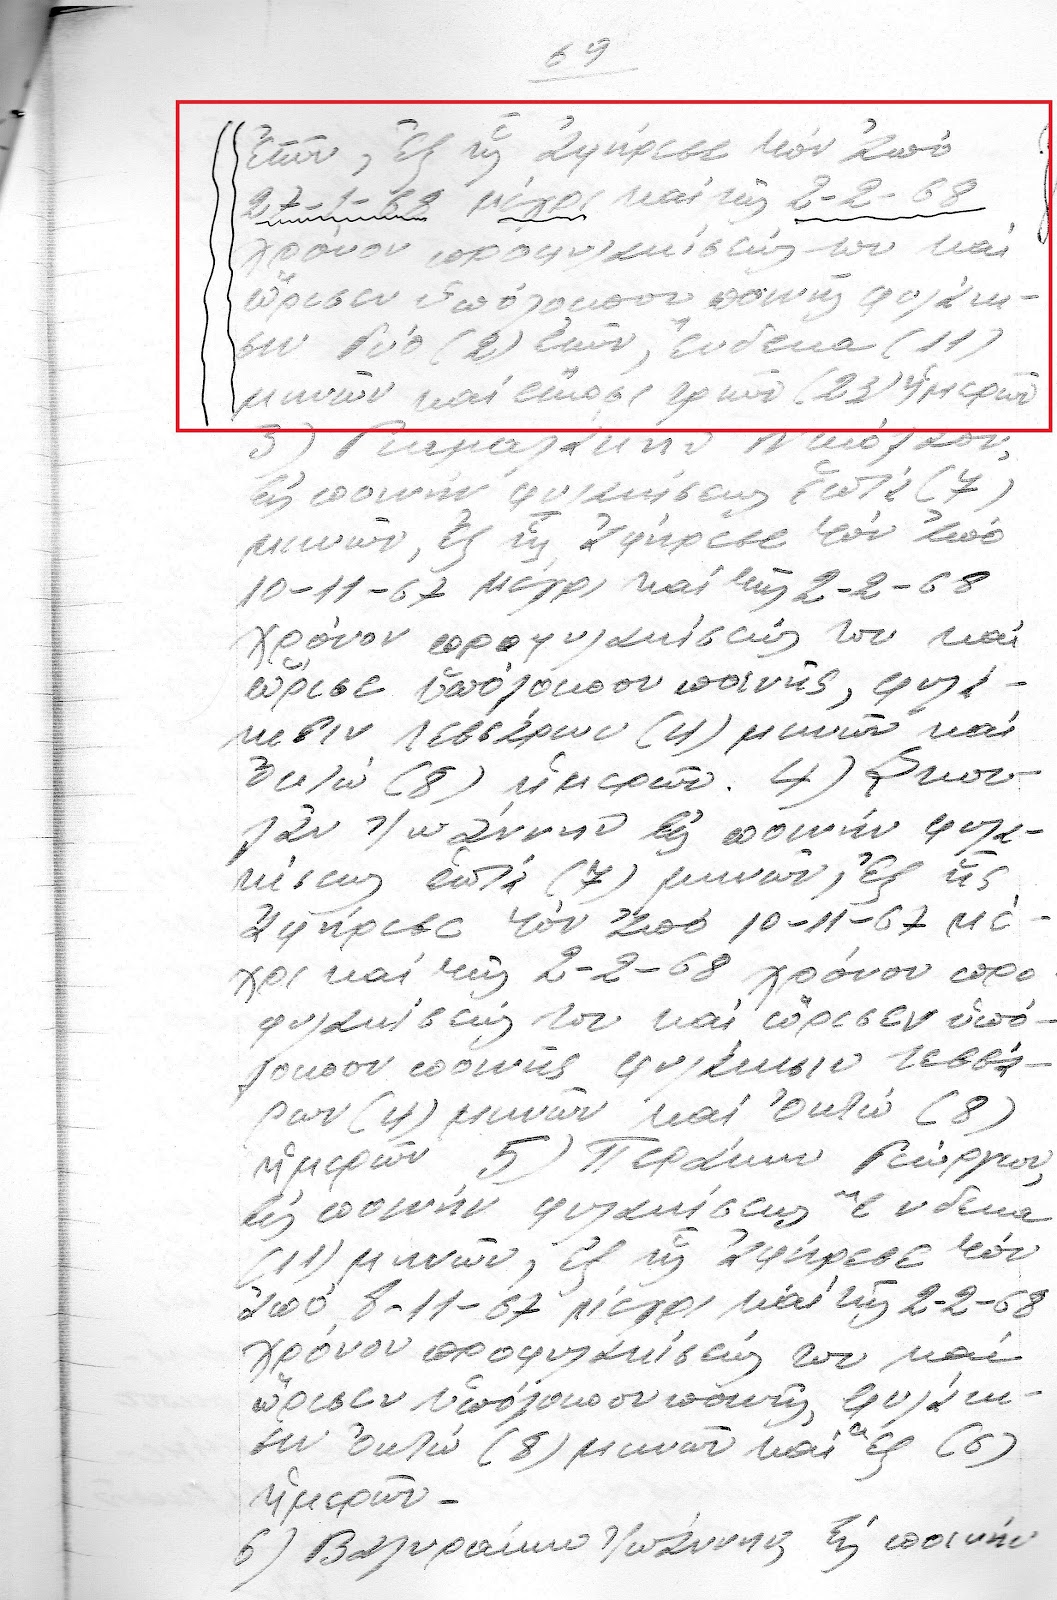 69
ἐτῶν, ἐξ ἧς ἀφήρεσε τόν ἀπό
27-1-68 μέχρι καί τῆς 2-2-68
χρόνον προφυλακίσεώς του καί
ὥρισεν ὑπόλοιπον ποινῆς φυλάκι-
σιν δύο (2) ἐτῶν, ἕνδεκα (11)
μηνῶν καί εἴκοσι τριῶν (23) ἡμερῶν
3) Νικόλαον,
εἰς ποινήν φυλακίσεως ἑπτά (7)
μηνῶν, ἐξ ἧς ἀφήρεσε τόν ἀπό
10-11-67 μέχρι καί τῆς 2-2-68
χρόνον προφυλακίσεώς του καί
ὥρισε ὑπόλοιπον ποινῆς, φυλά-
κισιν τεσσάρων (4) μηνῶν καί
ὀκτώ (8) ἡμερῶν. 4) Σκου-
λᾶν Ἰωάννην εἰς ποινήν φυλα-
κίσεως ἑπτά (7) μηνῶν, ἐξ ἧς
ἀφήρεσε τόν ἀπό 10-11-67 μέ-
χρι καί τῆς 2-2-68 χρόνον προ-
φυλακίσεώς του καί ὥρισεν ὑπό-
λοιπον ποινῆς φυλάκισιν τεσσά-
ρων (4) μηνῶν καί ὀκτώ (8)
ἡμερῶν 5) Περάκην Γεώργιον,
εἰς ποινήν φυλακίσεως ἕνδεκα
(11) μηνῶν, ἐξ ἧς ἀφήρεσε τόν
ἀπό 8-11-67 μέχρι καί τῆς 2-2-68
χρόνον προφυλακίσεώς του καί
ὥρισεν ὑπόλοιπον ποινῆς, φυλάκι-
σιν ὀκτώ (8) μηνῶν καί ἕξ (6)
ἡμερῶν-
6) Βαλυράκην Ἰωάννην εἰς ποινήν